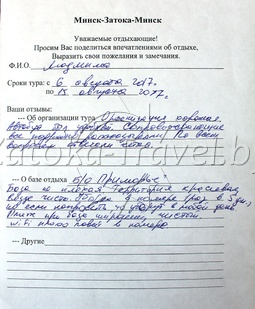 Минск-Затока-Минск
Уважаемые отдыхающие!
Просим Вас поделиться впечатлениями об отдыхе,
Выразить свои пожелания и замечания.
Ф.И.О. Людмила
Сроки тура: с 6 августа 2017г.
по 15 августа 2017г.
Ваши отзывы:
--- Об организации тура Организация хорошая.
Автобус был удобный. Сопровождающие
все подробно рассказывали. По всем
вопросам ответили
--- О базе отдыха Б/О Приморье
База не плохая территория красивая,
везде чисто. Уборка в номере 1раз в 5 дн,
но если попросить то уберут в любой день
Пляж при базе широкий, чистый.
Wi Fi плохо ловит в номере
--- Другие